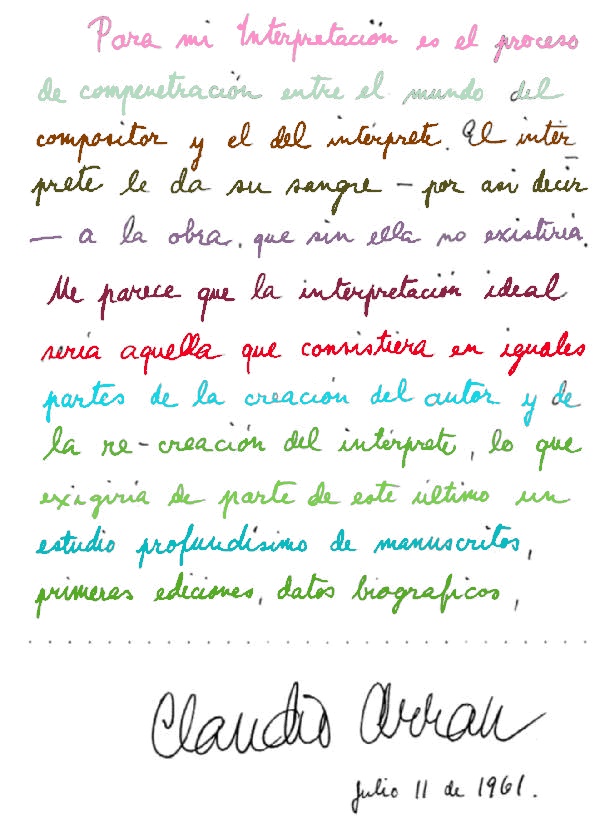 Para mi Interpretación es el proceso
de compenetración entre el mundo del
compositor y el del intérprete. El intér
prete le da su sangre – por asi decir
– a la obra, que sin ella no existiria.
Me parece que la interpretación ideal
sería aquella que consistiera en iguales
partes de la creación del autor y de
la re-creación del intérprete, lo que
exigiria de parte de este último un
estudio profundísimo de manuscritos,
primeras ediciones, datos biograficos,
Claudio Arrau
Julio 11 de 1961.